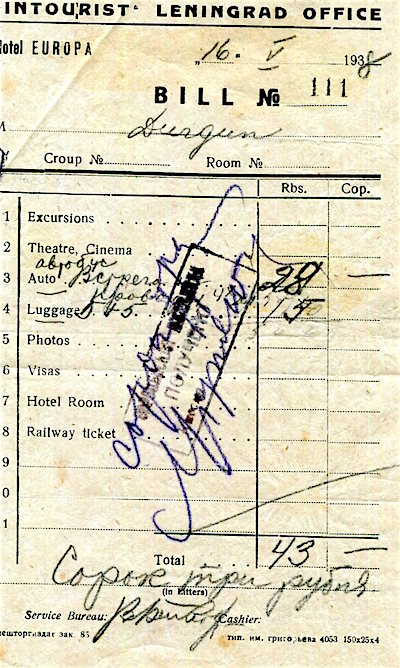 INTOURIST' LENINGRAD OFFICE
otel EUROPA
„16- V 1938
BILL № 111
M Durgun
Croup № Room №
Rbs. Cop.
1 Excursions
2 Theatre, Cinema
автобус
3 Auto Встреча 28 —
4 Luggage 15
5 Photos
6 Visas
7 Hotel Room
8 Railway ticket
9
0
1
сорок три
ПОЛУЧЕНО
Total 43 —
Сорок три рубля
(in Litters)
Service Bureau: Cashier:
нешторгиздат зак. 85 тип. им. григорьева 4053 150x25x4